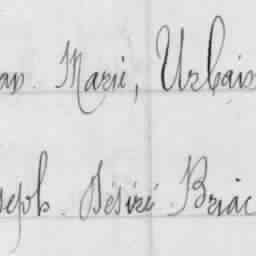 Marie, Urbain
seph Désiré Briac